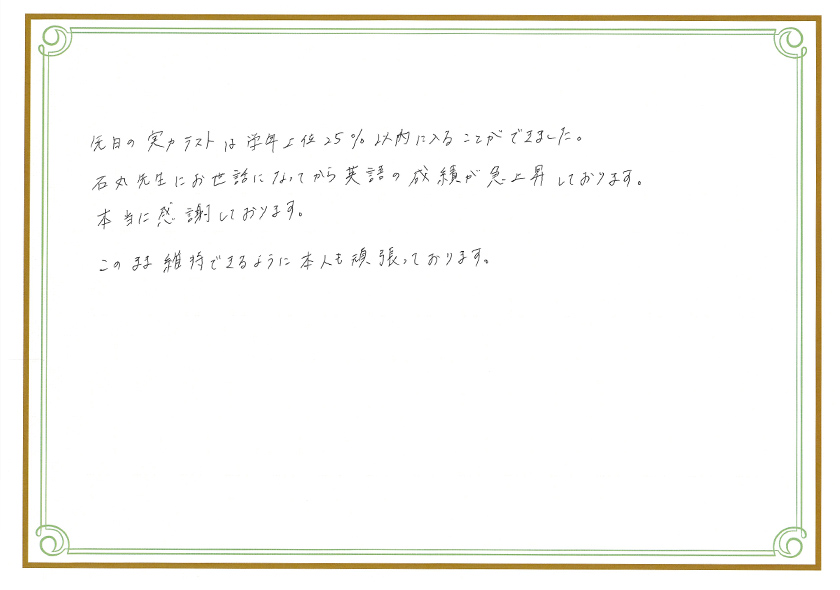 先日の実力テストは学年上位25%以内に入ることができました。
石丸先生にお世話になってから英語の成績が急上昇しております。
本当に感謝しております。
このまま維持できるように本人も頑張っております。